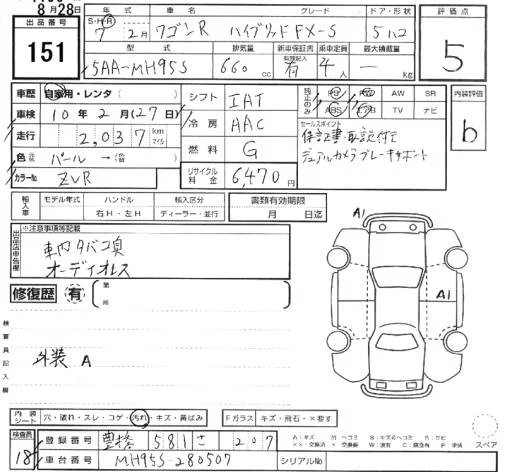 8月28日
出品番号
151
年式 車名 グレード ドア・形状
S・H・R
7 2月 ワゴンR ハイブリッドFX-S 5ハコ
型式 排気量 新車保証書 乗車定員 最大積載量
有効記入
5AA-MH95S 660cc 有 4人 — kg
評価点
5
車歴 自家用・レンタ ( )
車検 10年2月(27日)
走行 2,037 km マイル
色 パール →( )
カラーNo ZVR
シフト IAT
冷房 AAC
燃料 G
リサイクル料金 6,470円
AW SR
ABS TV ナビ
セールスポイント
保証書・取説付て
デュアルカメラブレーキサポート
内装評価
b
輸入車 モデル年式 ハンドル 輸入区分
右H・左H ディーラー・並行
書類有効期限
月 日迄
出品店申告欄
※注意事項等記載
車内タバコ臭
オーディオレス
修復歴 有
箇所
検査員記入欄
外装 A
A1
A1
内装シート 穴・破れ・スレ・コゲ・汚れ・キズ・黄ばみ
Fガラス キズ・飛石・×要す
検査員
18
登録番号 豊橋 581 さ 207
車台番号 MH95S-280507
シリアルNo
スペア